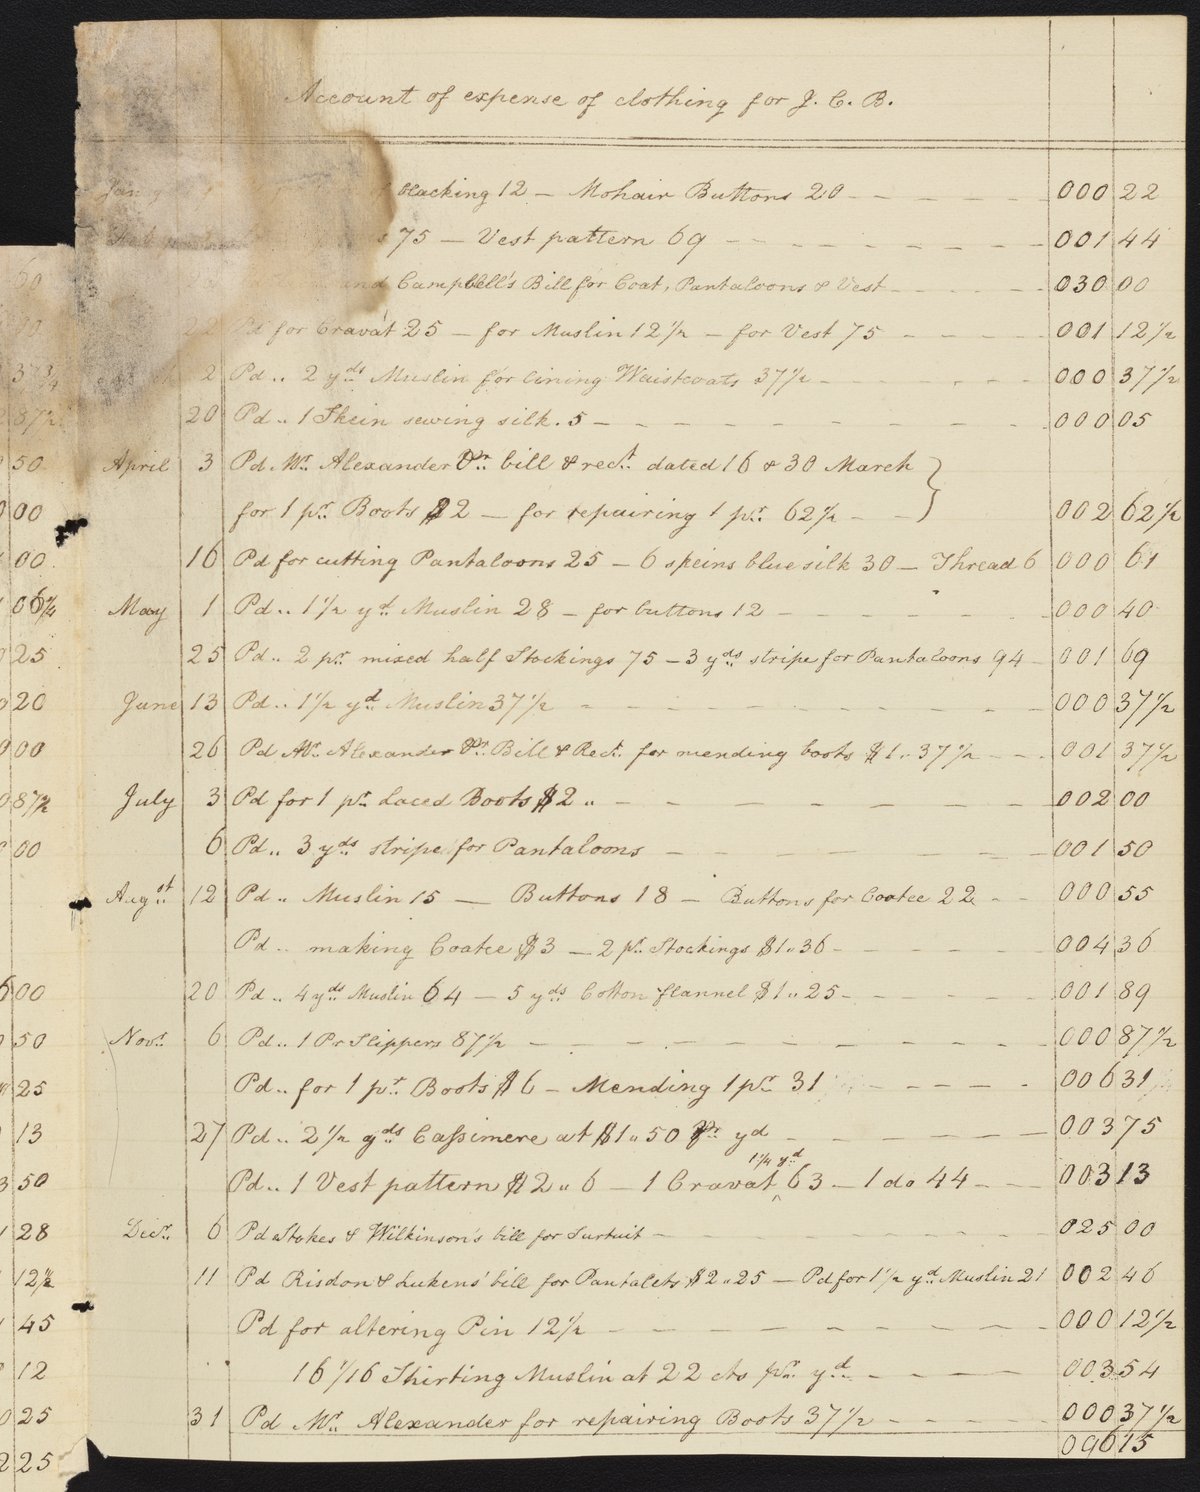 Account of expense of clothing for J. C. B.
blacking 12 — Mohair Buttons 20 — 000 22
75 — Vest pattern 69 — 001 44
and Campbell's Bill for Coat, Pantaloons & Vest — 030 00
22 Pd for Cravat 25 — for Muslin 12 1/2 — for Vest 75 — 001 12 1/2
2 Pd .. 2 yds Muslin for lining Waistcoats 37 1/2 — 000 37 1/2
20 Pd .. 1 Skein sewing silk . 5 — 000 05
April 3 Pd Mr. Alexander Pr. bill & rect. dated 16 & 30 March
for 1 pr. Boots $2 — for repairing 1 pr. 62 1/2 — 002 62 1/2
16 Pd for cutting Pantaloons 25 — 6 skeins blue silk 30 — Thread 6 000 61
May 1 Pd .. 1 1/2 yd. Muslin 28 — for buttons 12 — 000 40
25 Pd .. 2 pr. mixed half Stockings 75 — 3 yds stripe for Pantaloons 94 — 001 69
June 13 Pd .. 1 1/2 yd. Muslin 37 1/2 — 000 37 1/2
26 Pd Mr. Alexander Pr. Bill & Rect. for mending boots $1 .. 37 1/2 — 001 37 1/2
July 3 Pd for 1 pr. Laced Boots $2 .. — 002 00
6 Pd .. 3 yds. stripe for Pantaloons — 001 50
Augst. 12 Pd .. Muslin 15 — Buttons 18 — Buttons for Coatee 22 — 000 55
Pd .. making Coatee $3 — 2 pr. Stockings $1 .. 36 — 004 36
20 Pd .. 4 yds Muslin 64 — 5 yds Cotton flannel $1 .. 25 — 001 89
Novr. 6 Pd .. 1 Pr Slippers 87 1/2 — 000 87 1/2
Pd .. for 1 pr. Boots $6 — Mending 1 pr. 31 — 006 31
27 Pd .. 2 1/2 yds Cassimere at $1 .. 50 Pr yd — 003 75
1 1/4 yd
Pd .. 1 Vest pattern $2 .. 6 — 1 Cravat ^ 63 — 1 do 44 — 003 13
Decr. 6 Pd Stokes & Wilkinson's bill for Surtuit — 025 00
11 Pd Risdon & Lukens' bill for Pantalets $2 .. 25 — Pd for 1 1/2 yd. Muslin 21 002 46
Pd for altering Pin 12 1/2 — 000 12 1/2
16 1/16 Shirting Muslin at 22 cts pr. yd — 003 54
31 Pd Mr. Alexander for repairing Boots 37 1/2 — 000 37 1/2
096 15
50
00
00
06 1/4
25
20
00
87 1/2
00
00
50
25
13
50
28
12 1/2
45
12
25
25